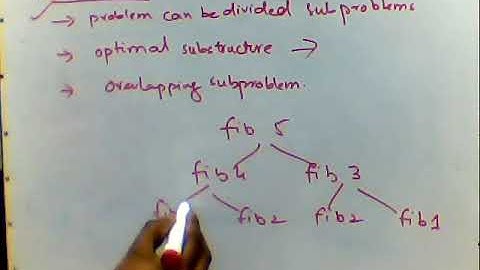 → problem can be divided subproblems
→ optimal substructure →
→ overlapping subproblem.
fib 5
fib 4 fib 3
fib 2 fib 2 fib 1